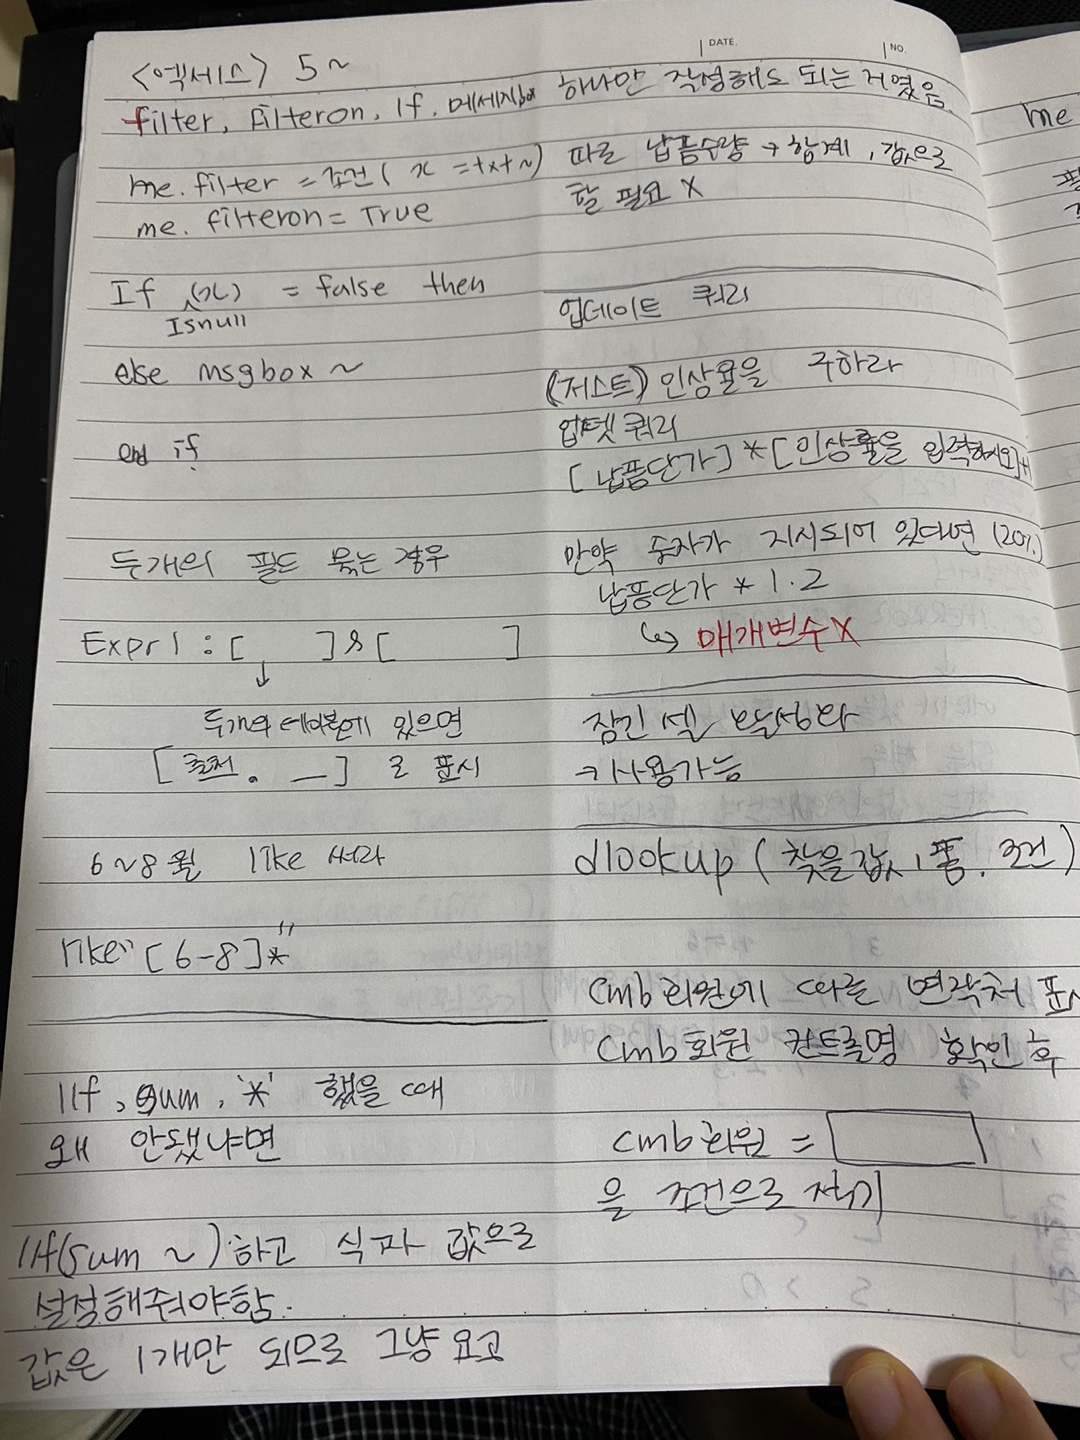 DATE.
NO.
<엑세스> 5~
filter, filteron, If, 메세지box
me.filter = 조건( x = txt ~)
me. filteron = True
If (x) = false then
Isnull
else msgbox ~
end if
두개의 필드 묶는 경우
Expr1 : [ ] & [ ]
↓
두개의 테이블에 있으면
[ 출처. _ ] 로 표시
6~8월 like 써라
like "[6-8]*"
IIf, sum, '*' 했을 때
왜 안됐냐면
IIf(sum ~) 하고 식과 값으로
설정해줘야함.
값은 1개만 되므로 그냥 요고
하나만 작성해도 되는 거였음
따로 납품수량 → 합계, 값으로
할 필요 X
업데이트 쿼리
(저스트) 인상율을 구하라
업뎃 쿼리
[납품단가] * [인상률을 입력하시오]+
만약 숫자가 지시되어 있다면 (20%)
납품단가 * 1.2
↳ 매개변수 X
잠긴 셀
→ 사용가능
dlookup ( 찾을값, 폼, 조건)
cmb회원에 따른 연락처
cmb회원 컨트롤명 확인 후
cmb회원 =
을 조건으로 적기
me